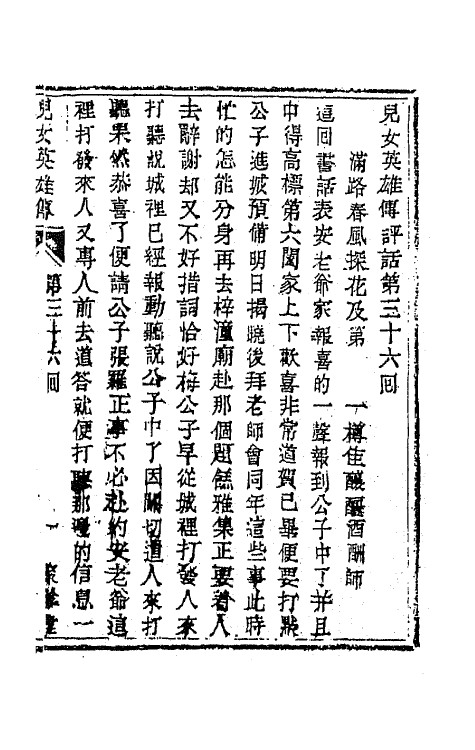 兒女英雄傳評話第三十六回
滿路春風探花及第　一樽佳醸醼酒酬師
這回書話表安老爺家報喜的一聲報到公子中了幷且
中得高標第六闔家上下歡喜非常道賀已畢便要打點
公子進城預備明日揭曉後拜老師會同年這些事此時
忙的怎能分身再去梓潼廟赴那個題糕雅集正要着人
去辭謝却又不好措詞恰好梅公子早從城裡打發人來
打聽說城裡已經報動聽說公子中了因關切遣人來打
聽果然恭喜了便請公子張羅正事不必赴約安老爺這
裡打發來人又專人前去道答就便打聽那邊的信息一
兒女英雄傳　第三十六回　一